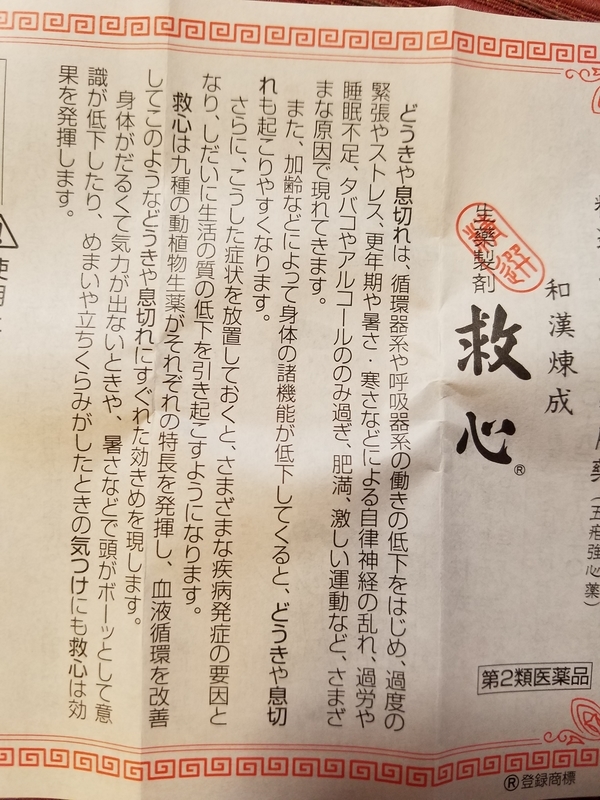 和漢煉成
生薬製剤
救心®
どうきや息切れは、循環器系や呼吸器系の働きの低下をはじめ、過度の
緊張やストレス、更年期や暑さ・寒さなどによる自律神経の乱れ、過労や
睡眠不足、タバコやアルコールののみ過ぎ、肥満、激しい運動など、さまざ
まな原因で現れてきます。
また、加齢などによって身体の諸機能が低下してくると、どうきや息切
れも起こりやすくなります。
さらに、こうした症状を放置しておくと、さまざまな疾病発症の要因と
なり、しだいに生活の質の低下を引き起こすようになります。
救心は九種の動植物生薬がそれぞれの特長を発揮し、血液循環を改善
してこのようなどうきや息切れにすぐれた効きめを現します。
身体がだるくて気力が出ないときや、暑さなどで頭がボーッとして意
識が低下したり、めまいや立ちくらみがしたときの気つけにも救心は効
果を発揮します。
第2類医薬品
®登録商標